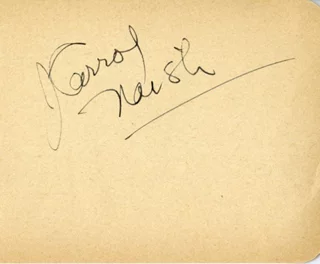 J Carrol
Naish